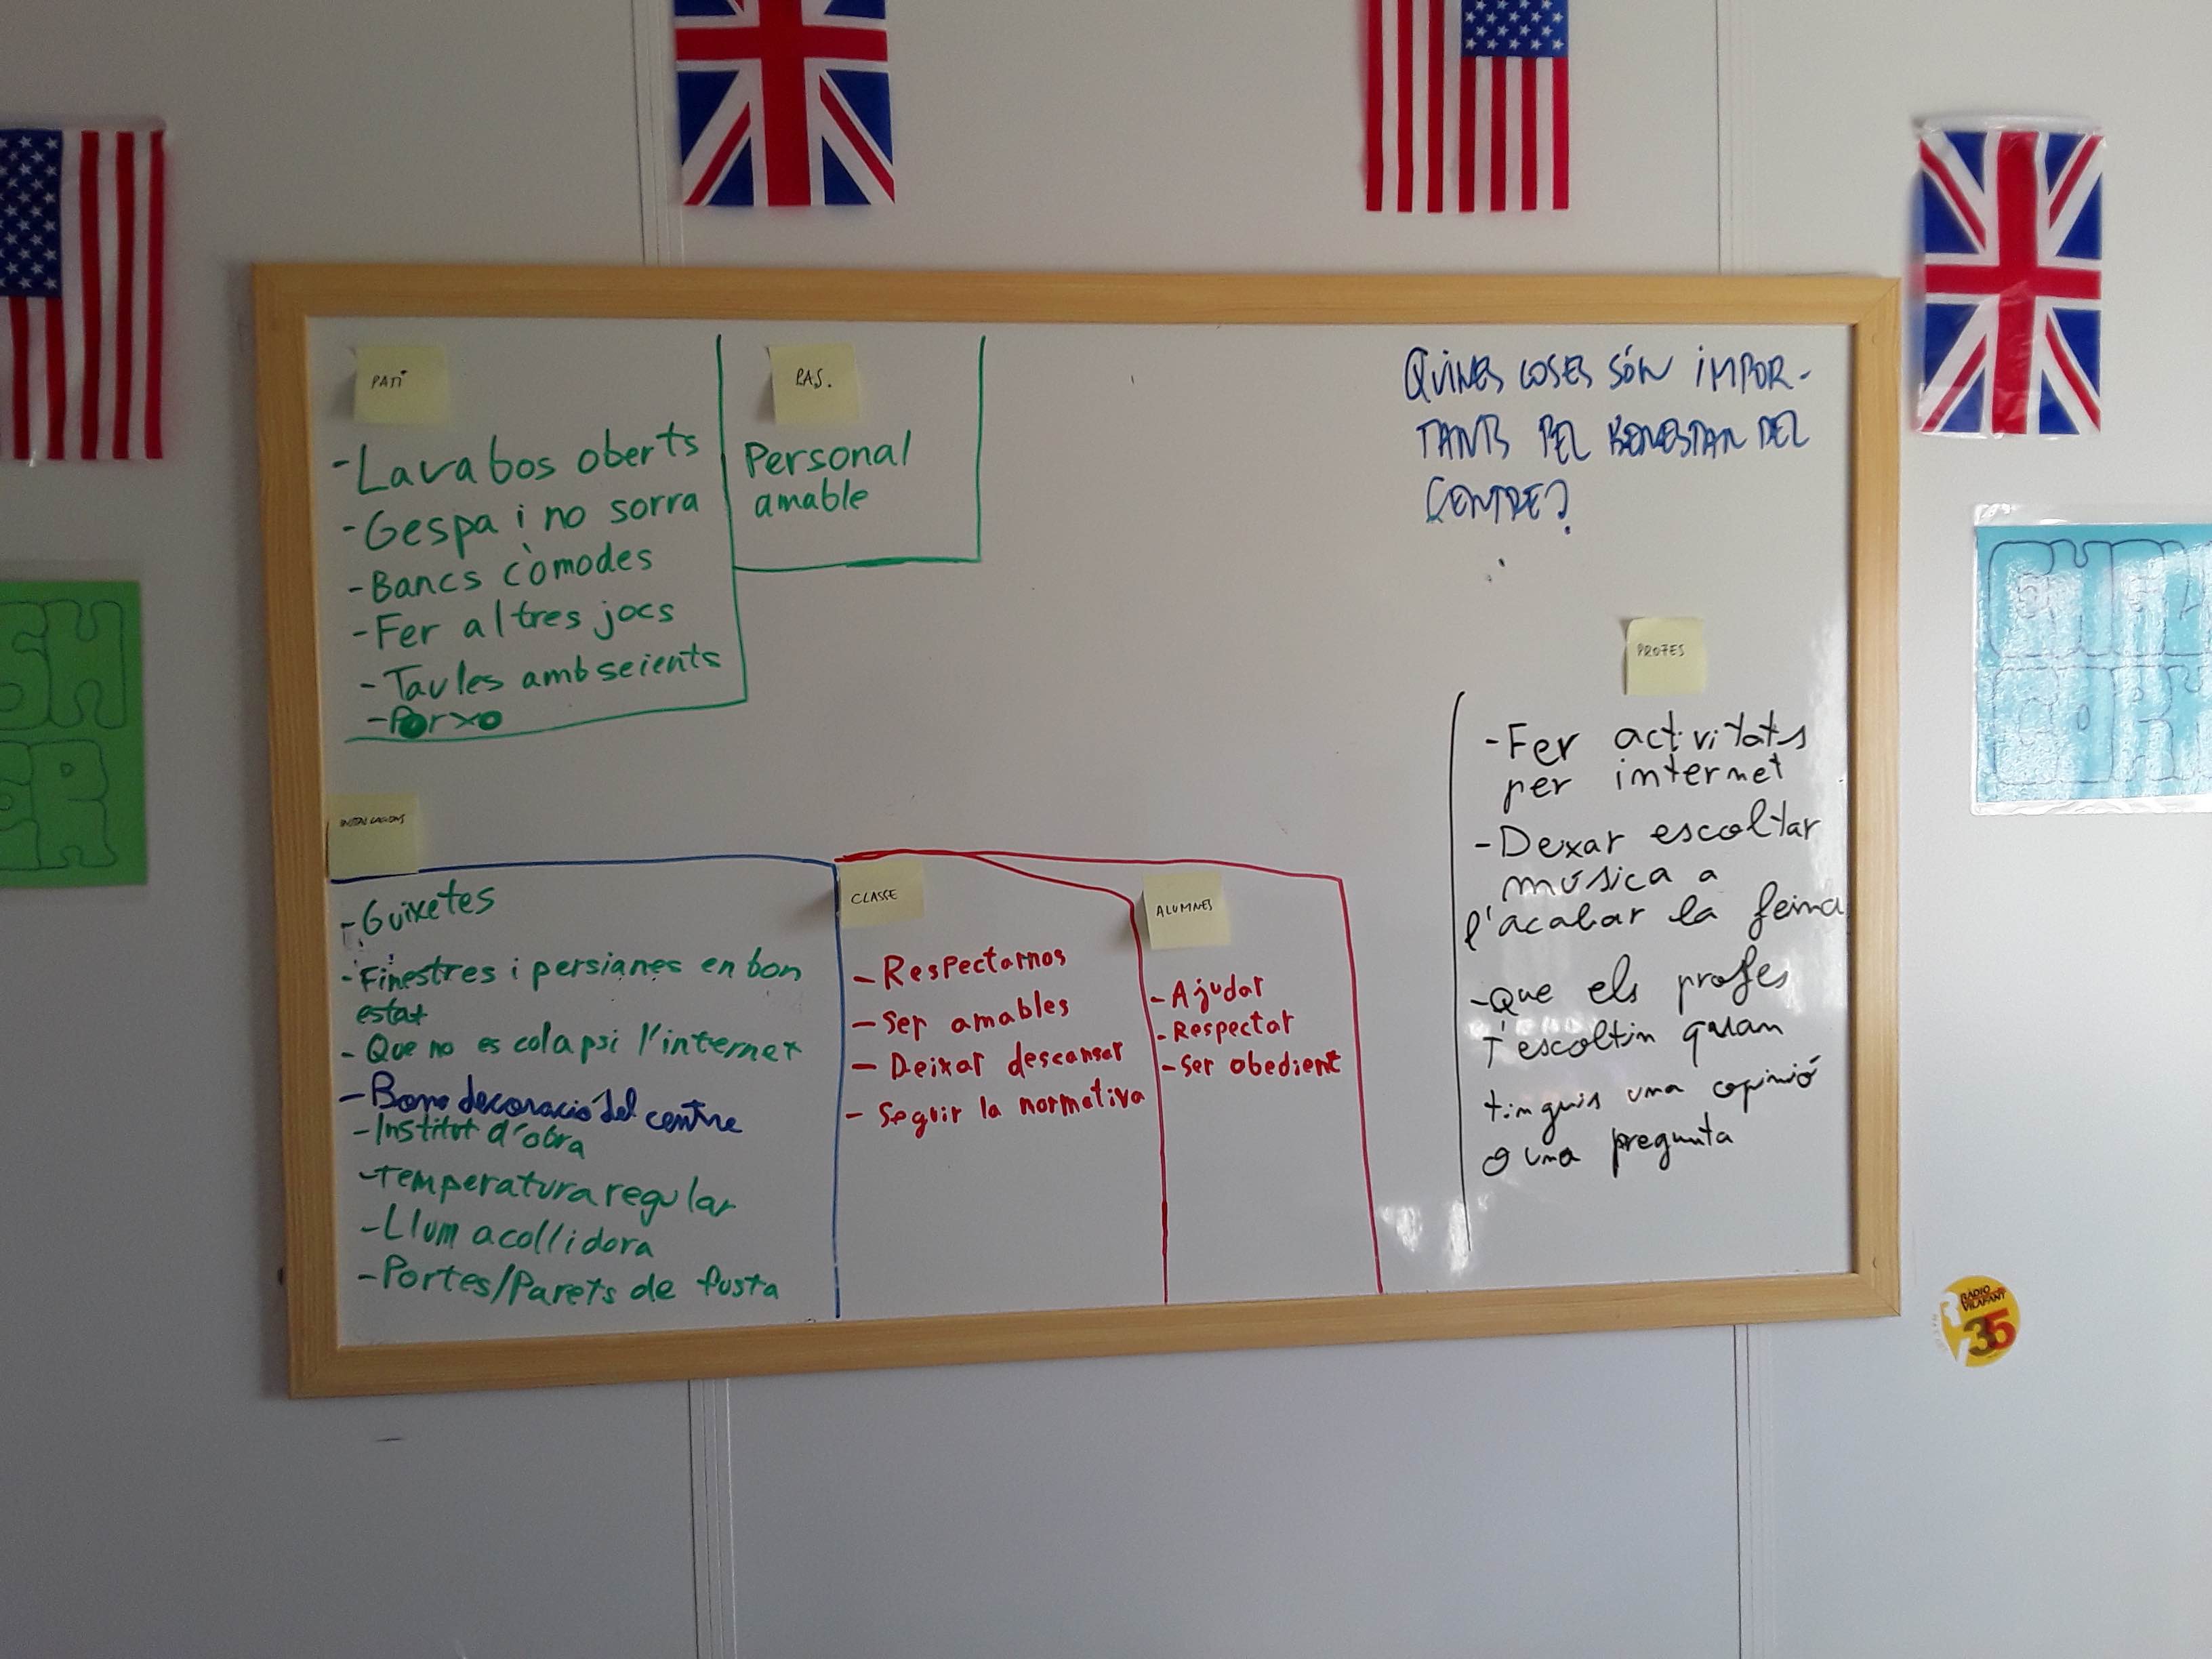 PATI
- Lavabos oberts
- Gespa i no sorra
- Bancs còmodes
- Fer altres jocs
- Taules amb seients
- Porxo
P.A.S.
Personal
amable
QUINES COSES SÓN IMPOR-
TANTS PEL BENESTAR DEL
CENTRE?
PROFES
- Fer activitats
per internet
- Dexar escoltar
música a
l'acabar la feina
- Que els profes
t'escoltin quan
tinguis una opinió
o una pregunta
INSTAL·LACIONS
- Guixetes
- Finestres i persianes en bon
estat
- Que no es colapsi l'internet
- Bona decoració del centre
- Institut d'obra
- Temperatura regular
- Llum acollidora
- Portes/Parets de fusta
CLASSE
- Respectarnos
- Ser amables
- Deixar descansar
- Seguir la normativa
ALUMNES
- Ajudar
- Respectar
- Ser obedient
RÀDIO
VILAFANT
35